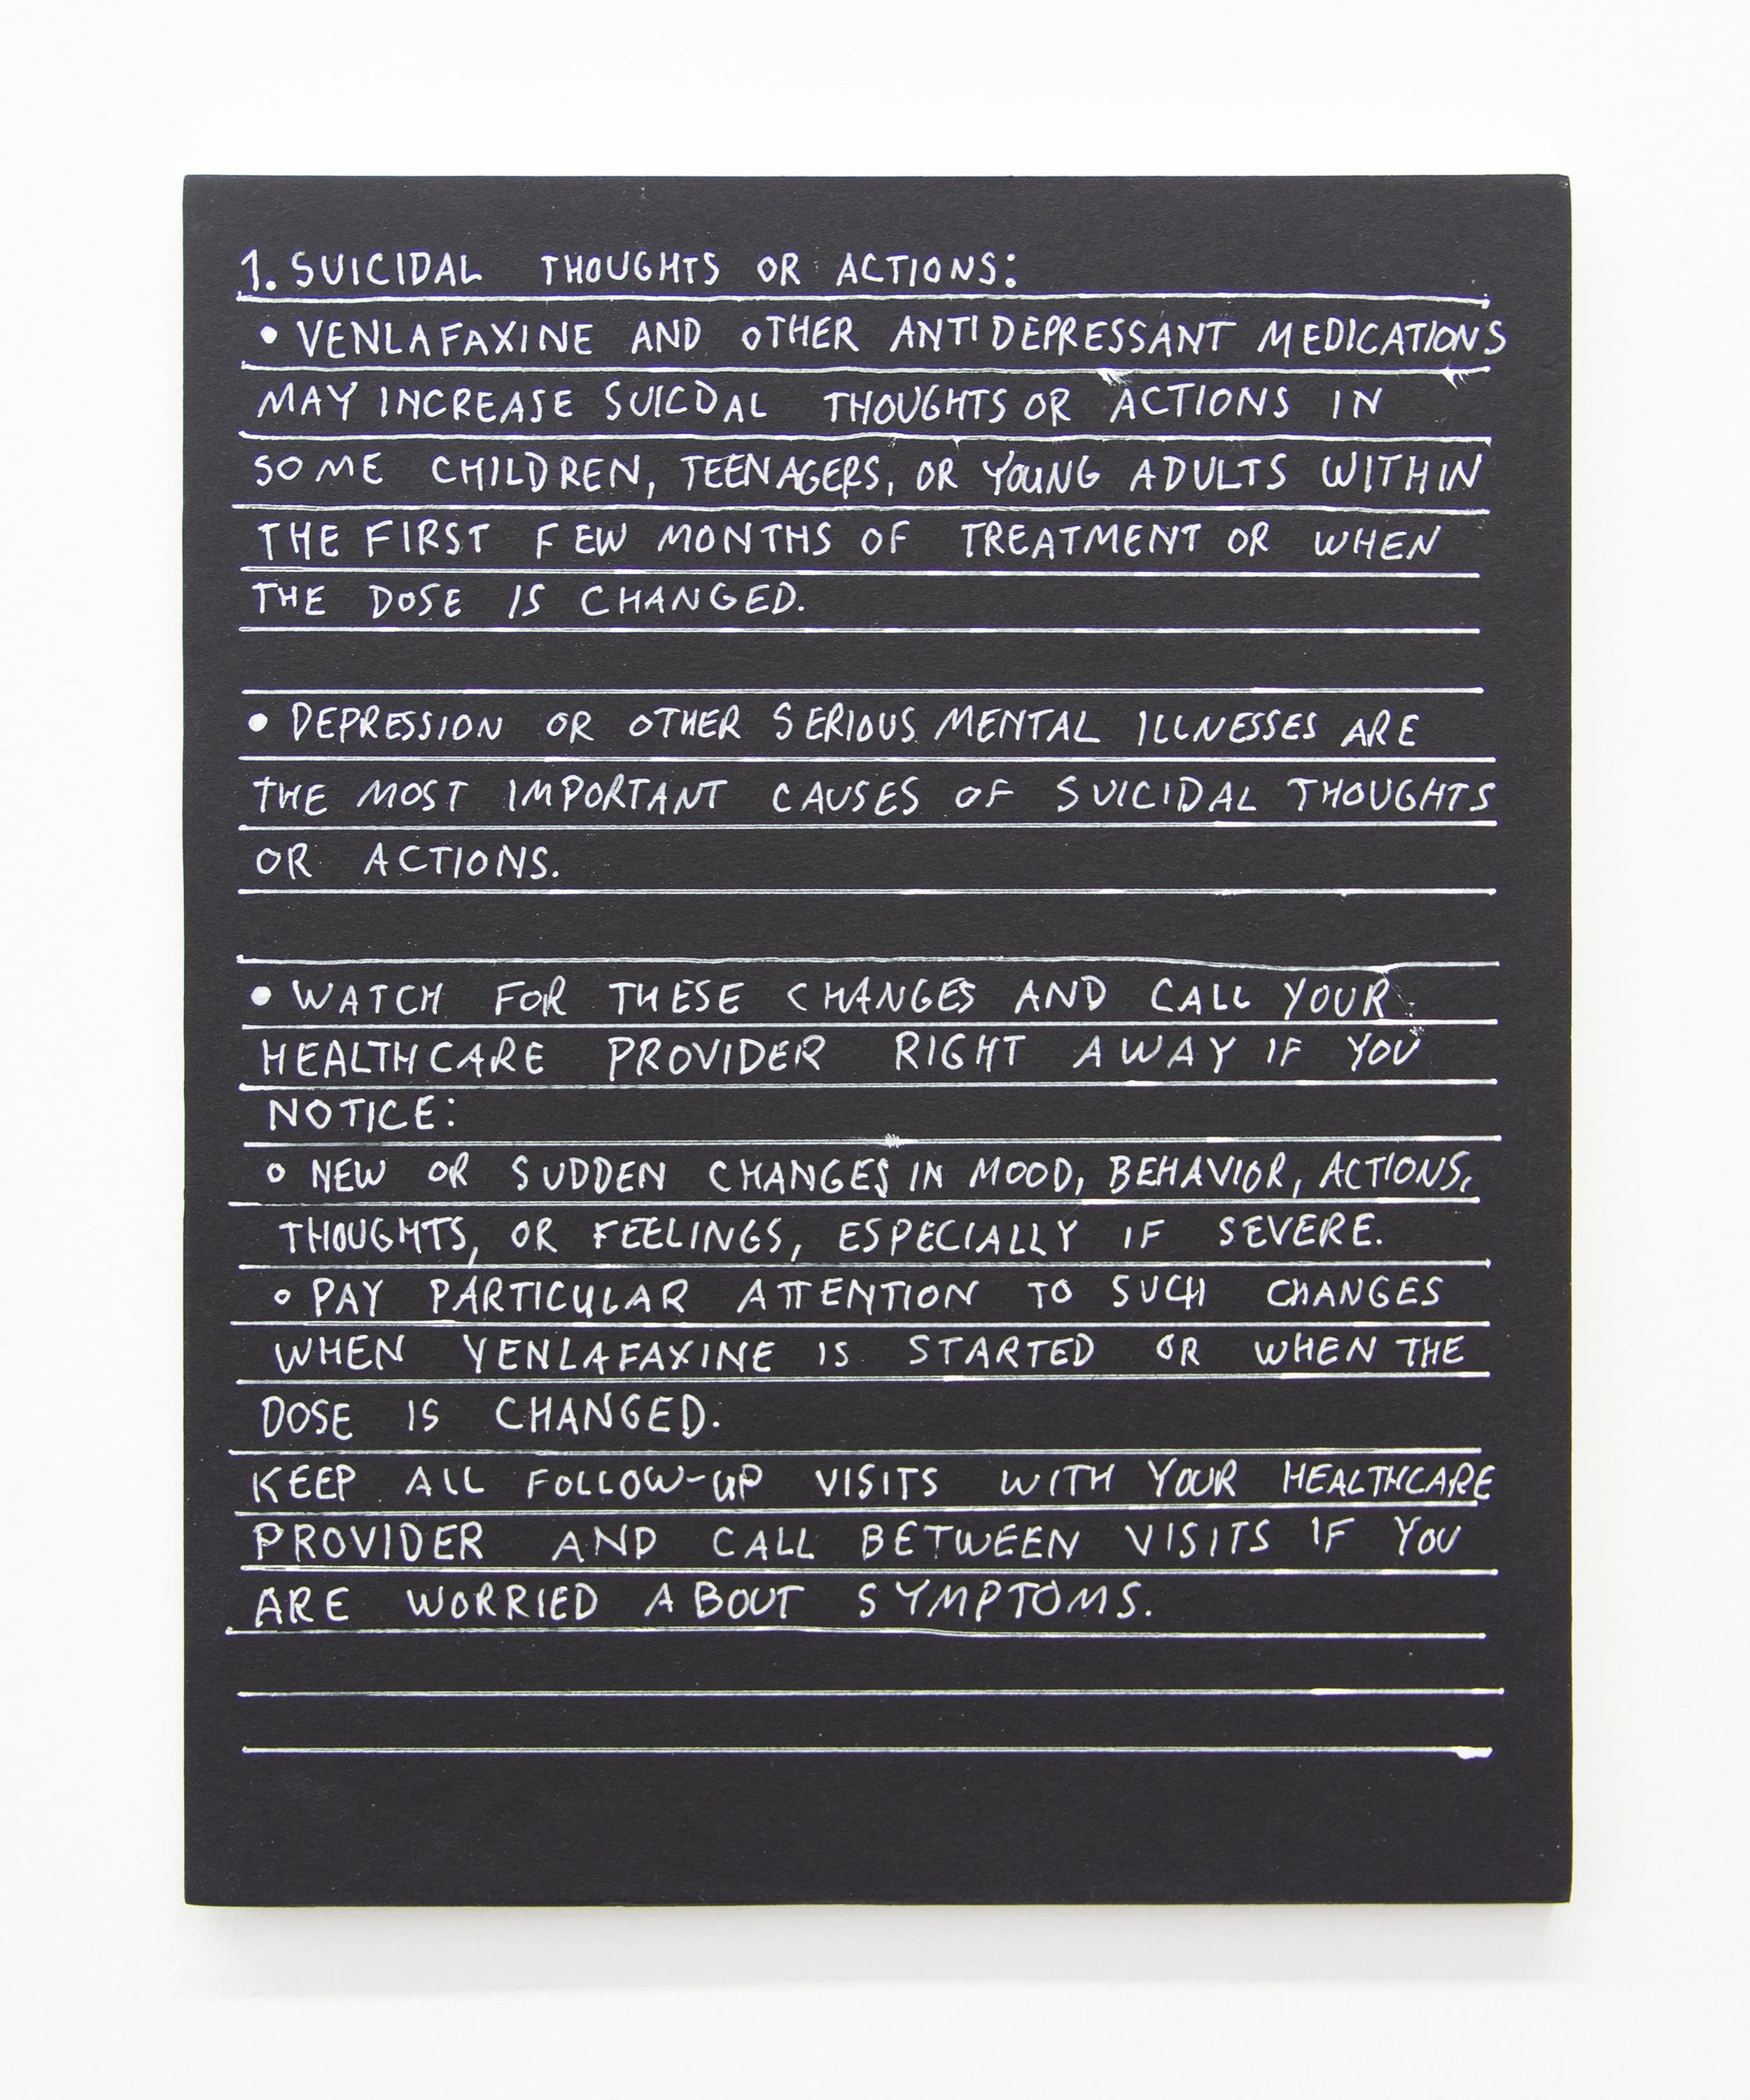 1. SUICIDAL THOUGHTS OR ACTIONS:
• VENLAFAXINE AND OTHER ANTIDEPRESSANT MEDICATIONS
MAY INCREASE SUICDAL THOUGHTS OR ACTIONS IN
SOME CHILDREN, TEENAGERS, OR YOUNG ADULTS WITHIN
THE FIRST FEW MONTHS OF TREATMENT OR WHEN
THE DOSE IS CHANGED.
• DEPRESSION OR OTHER SERIOUS MENTAL ILLNESSES ARE
THE MOST IMPORTANT CAUSES OF SUICIDAL THOUGHTS
OR ACTIONS.
• WATCH FOR THESE CHANGES AND CALL YOUR
HEALTHCARE PROVIDER RIGHT AWAY IF YOU
NOTICE:
○ NEW OR SUDDEN CHANGES IN MOOD, BEHAVIOR, ACTIONS,
THOUGHTS, OR FEELINGS, ESPECIALLY IF SEVERE.
○ PAY PARTICULAR ATTENTION TO SUCH CHANGES
WHEN VENLAFAXINE IS STARTED OR WHEN THE
DOSE IS CHANGED.
KEEP ALL FOLLOW-UP VISITS WITH YOUR HEALTHCARE
PROVIDER AND CALL BETWEEN VISITS IF YOU
ARE WORRIED ABOUT SYMPTOMS.